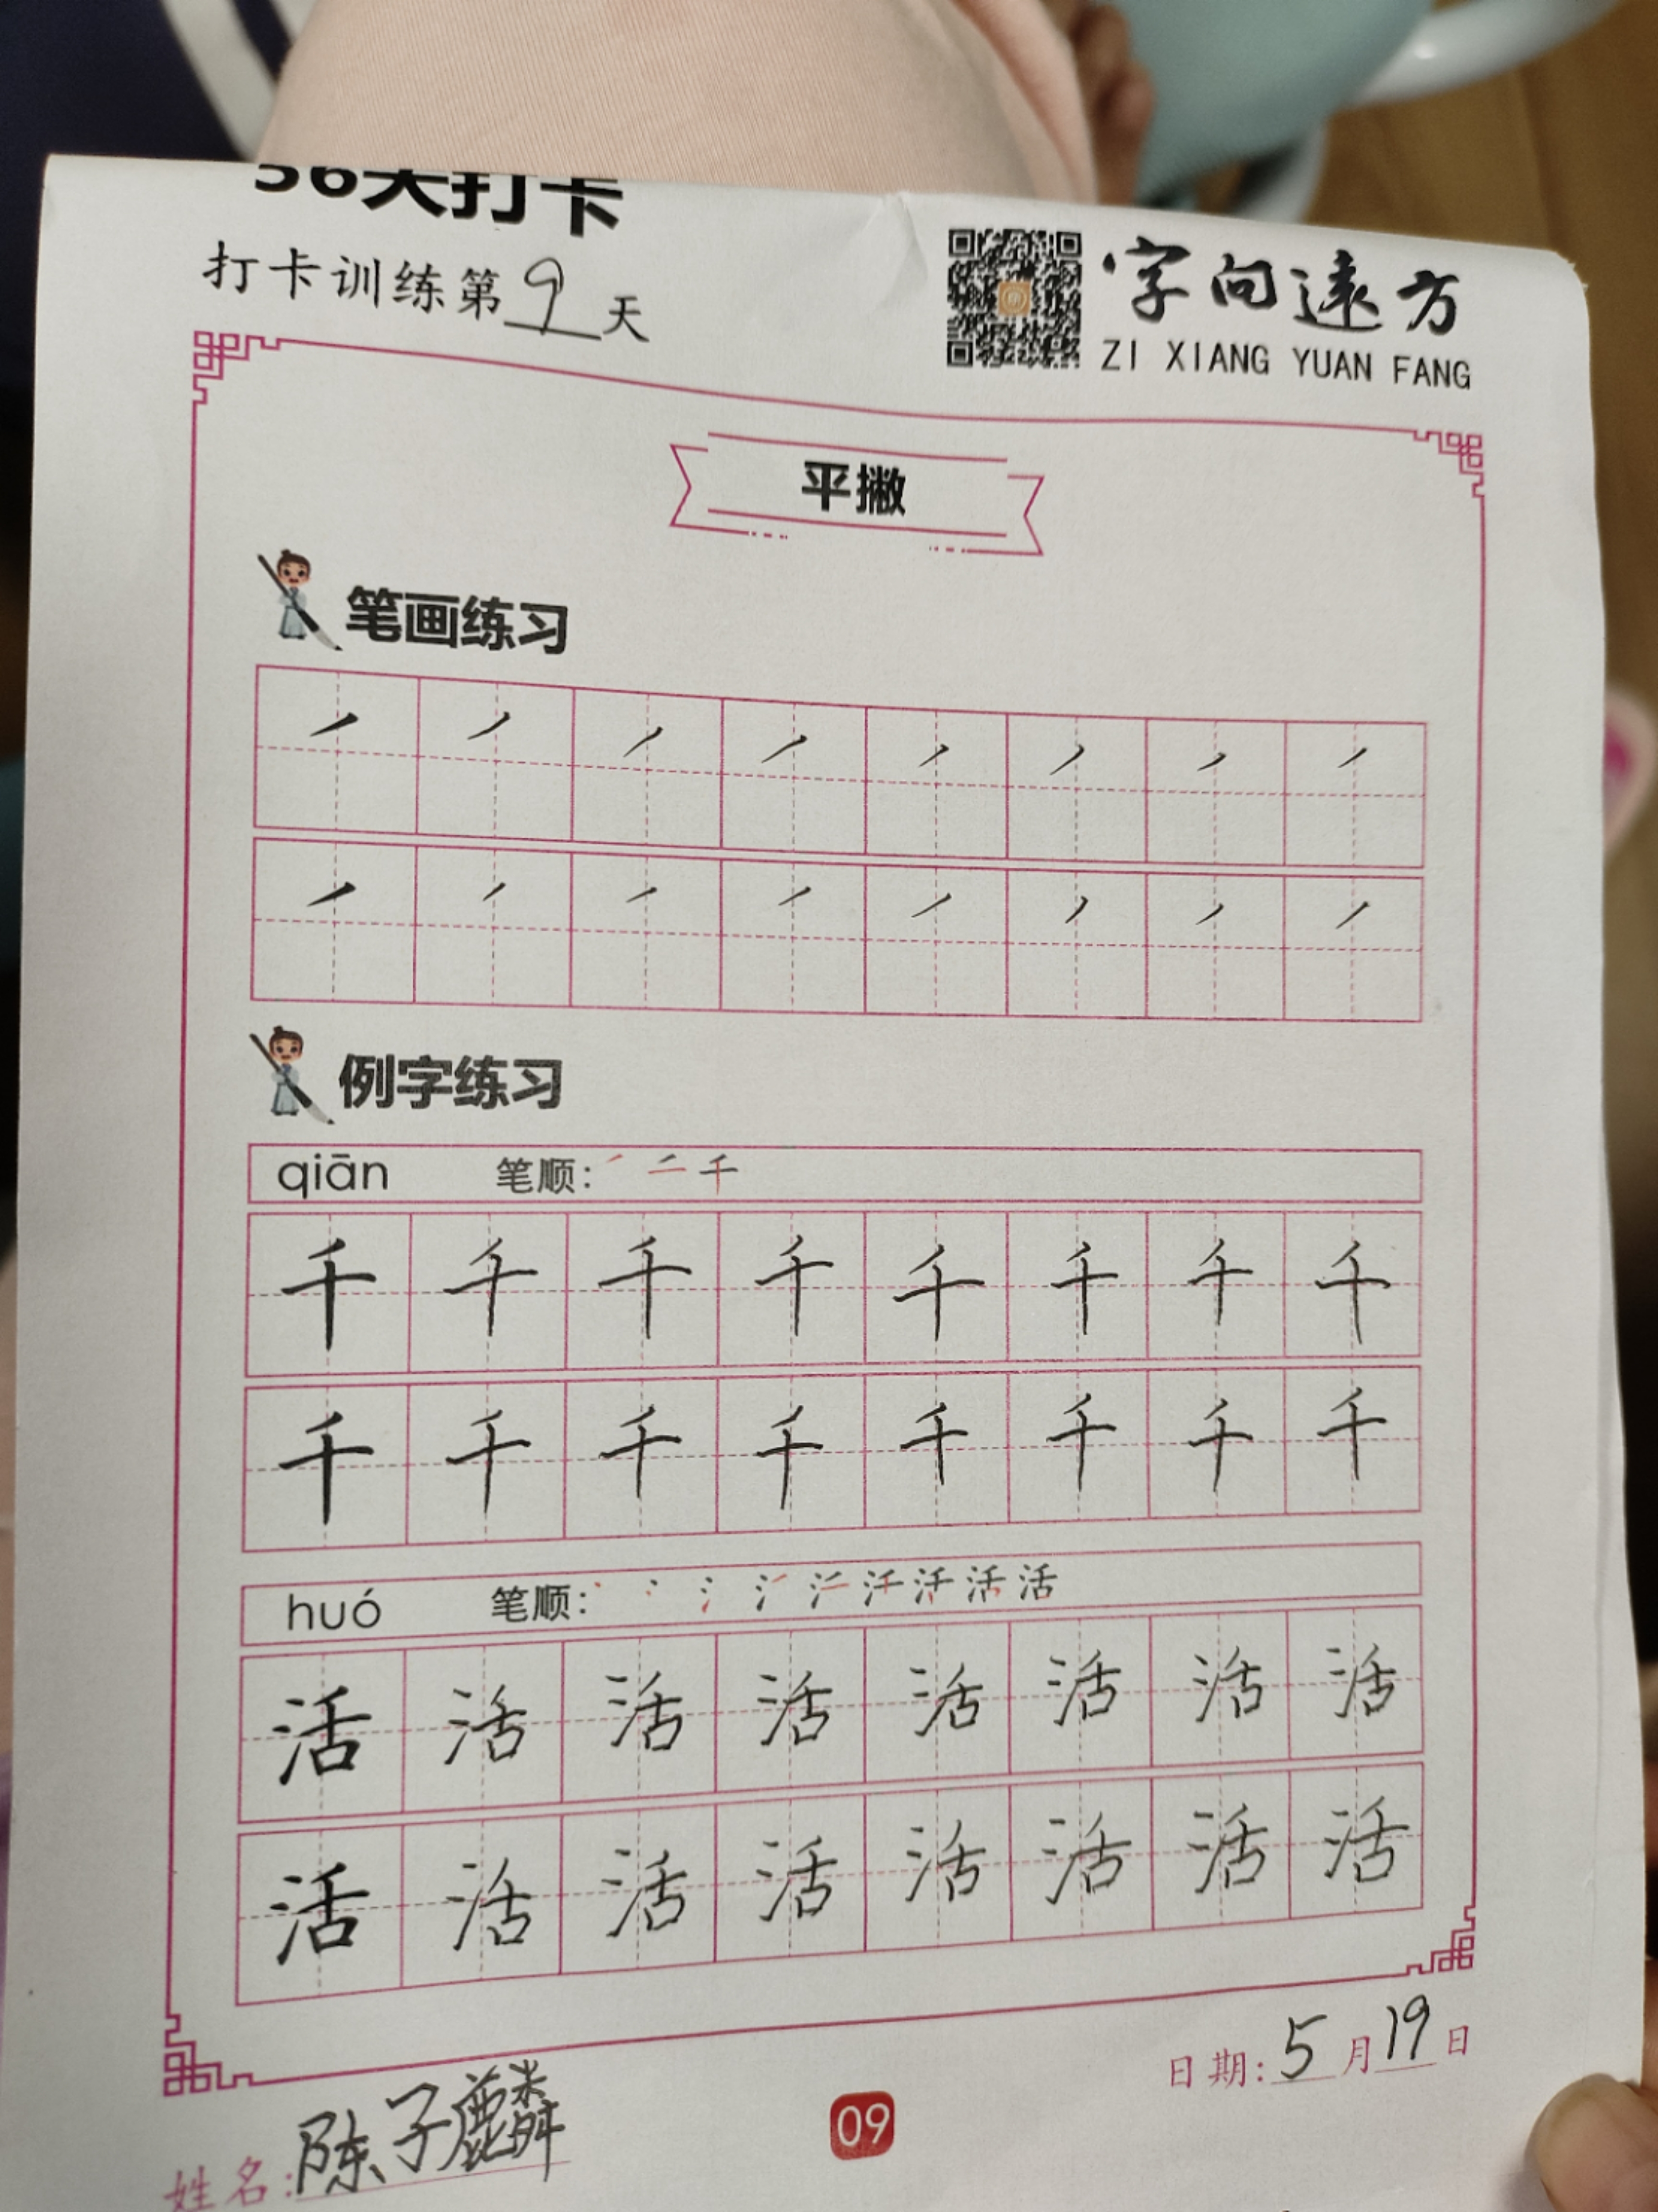 56天打卡
打卡训练第9天
字向远方
ZI XIANG YUAN FANG
平撇
笔画练习
例字练习
qiān 笔顺: 千
千 千 千 千 千 千 千 千
千 千 千 千 千 千 千 千
huó 笔顺: 活
活 活 活 活 活 活 活 活
活 活 活 活 活 活 活 活
日期: 5月19日
姓名: 陈子麟
09